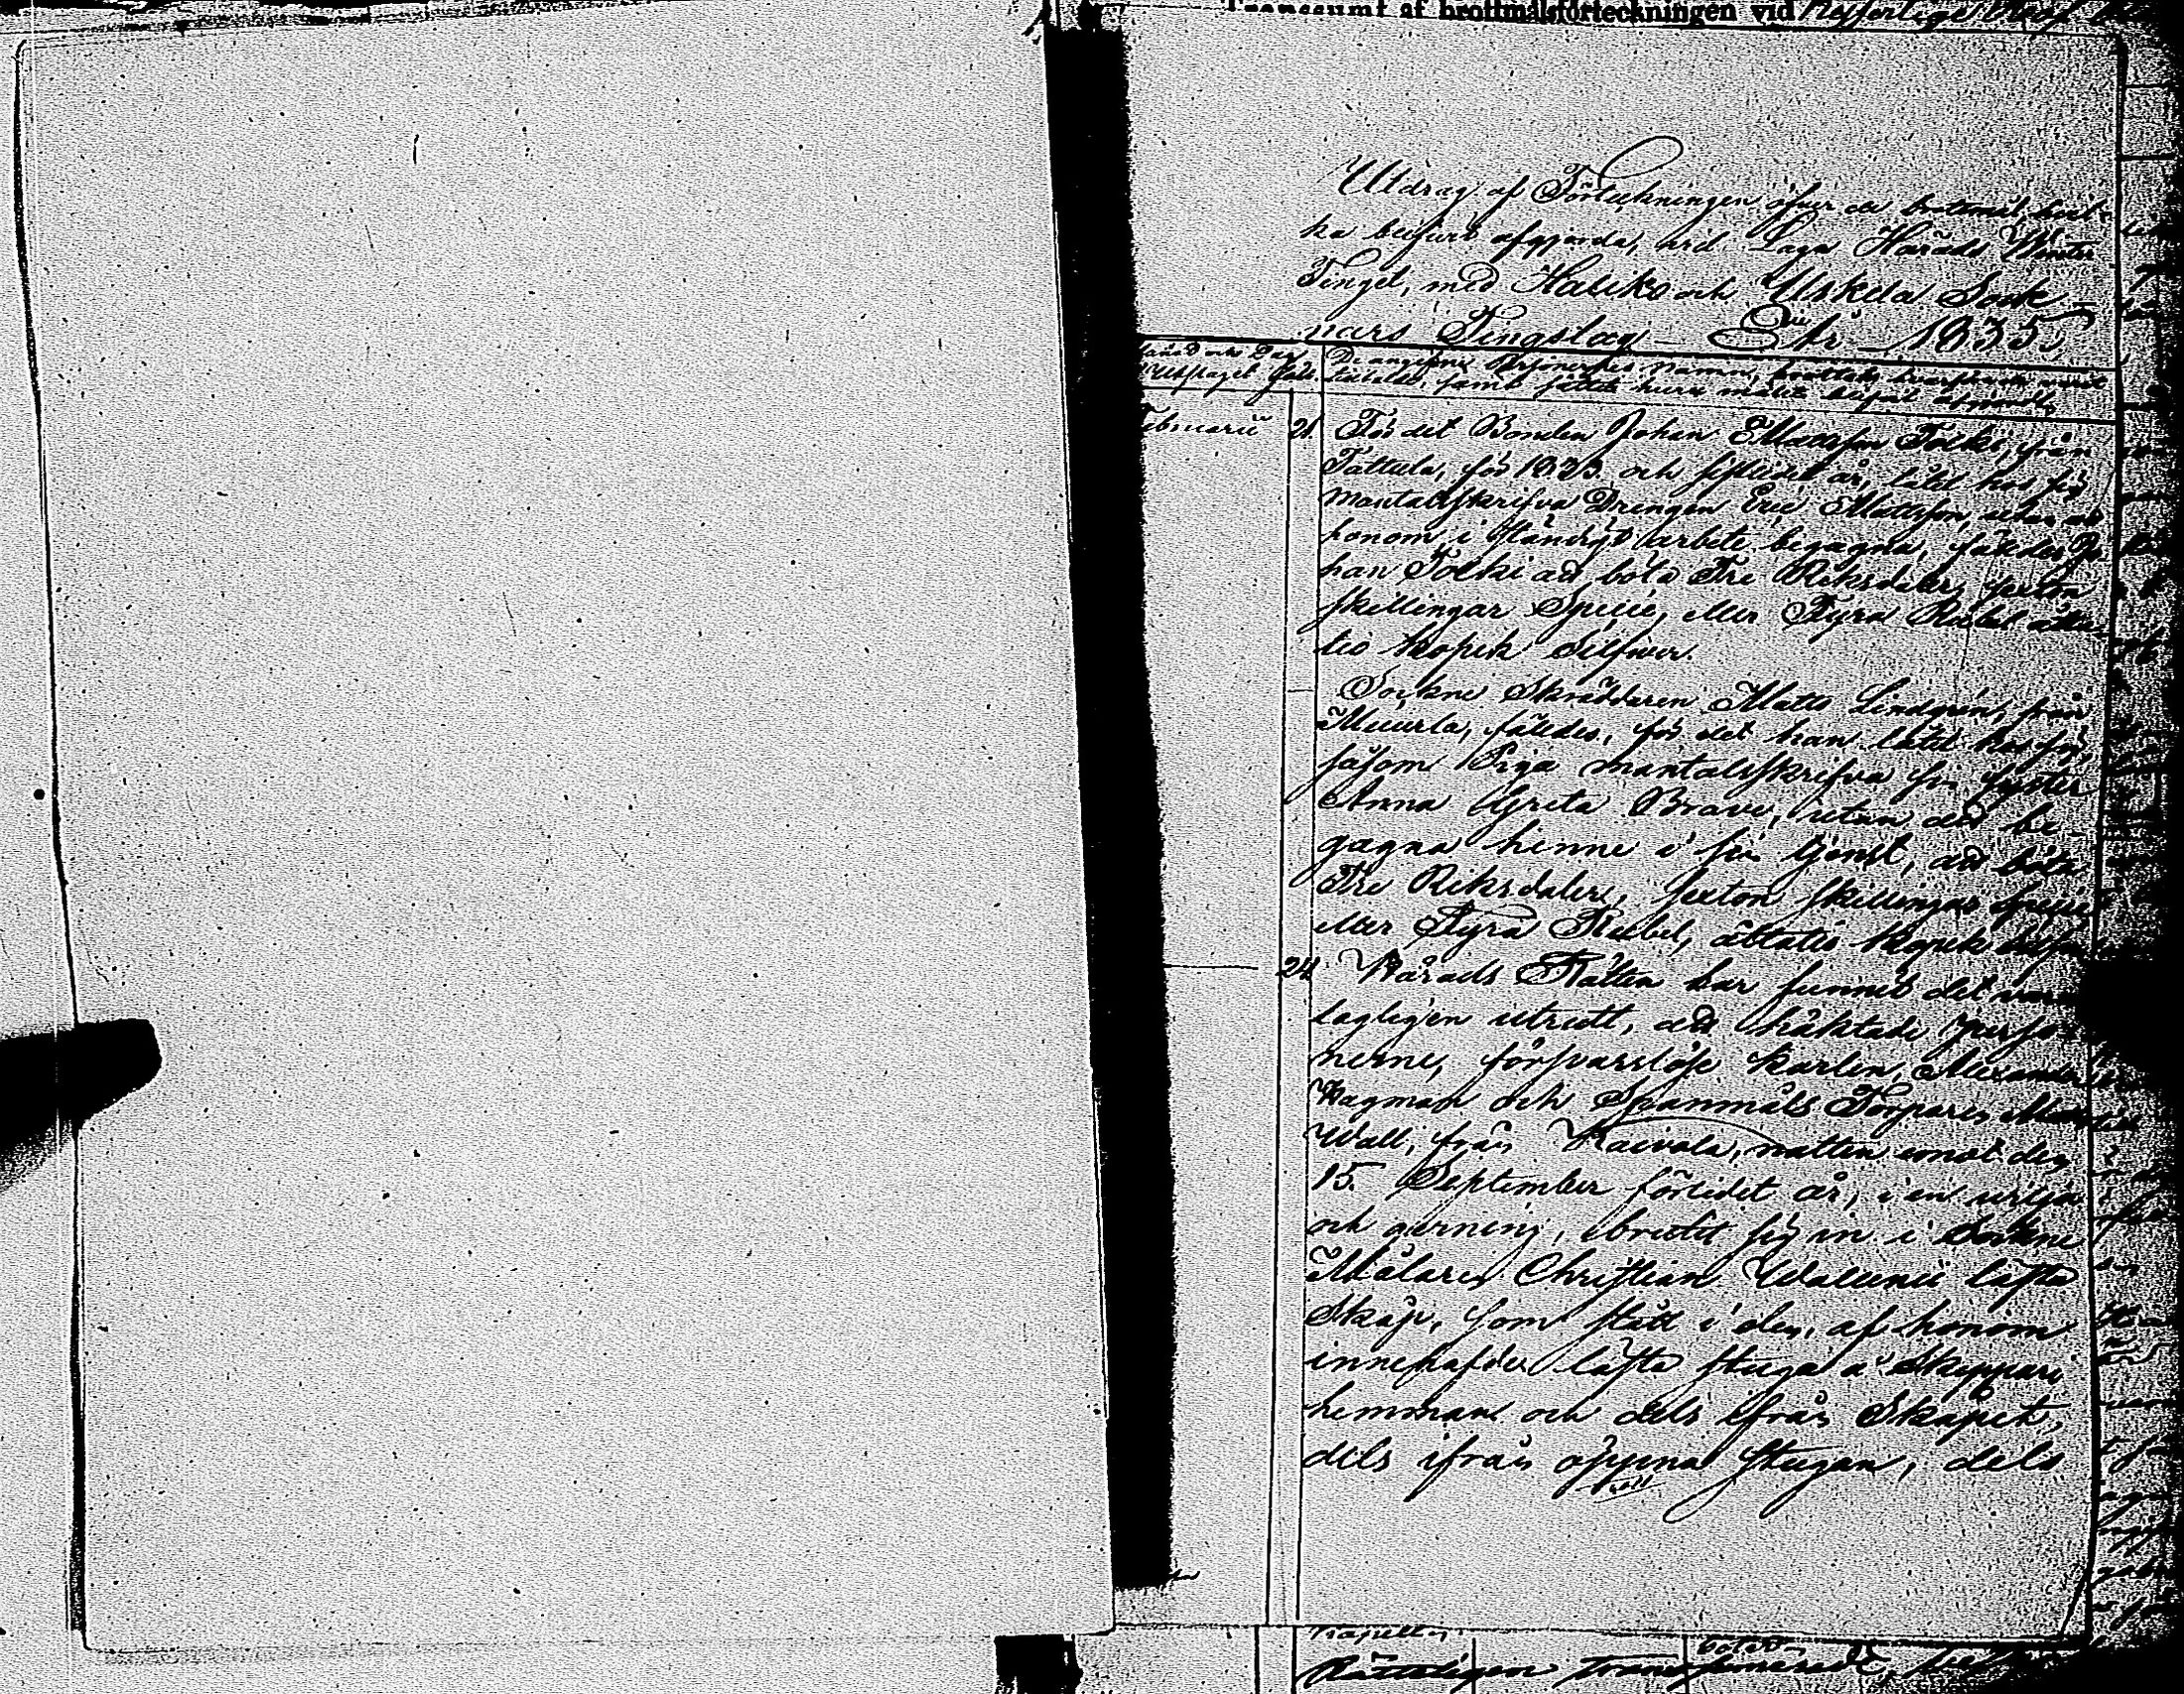 Transsumt af brottmålsförteckningen vid
Utdrag af Förteckningen öfver de brottmål, hvil-
ka blifvit afgjorda, vid Laga Härads Winter
Tinget, med Haliko och Uskela Sock-
nars Tingslag År 1835.
Månad och Dag De angifne Personernes namn, brottets beskaffenhet
Utslaget samt sättet huru målet blifvit afgjordt
Februarii 21. För det Bonden Johan Mattsson Tolki, från
Tattula, för 1833 och sistledet år, låtit hos sig
mantalsskrifva Drengen Eric Mattsson, utan att
honom i ständigt arbete begagna, fälldes Jo-
han Tolki att böta Tre Riksdaler sexton
skillingar Specie, eller Fyra Rubel åtta-
tio kopek Silfwer.
Sockne Skräddaren Matts Lindgrén, från
Muurla, fälldes, för det han låtit hos sig,
såsom Piga mantalsskrifva sin syster
Anna Greta Brave, utan att be-
gagna henne i sin tjenst, att böta
Tre Riksdaler, sexton skillingar specie
eller Fyra Rubel, åttatio kopek silfver
24. Härads Rätten har funnit det vara
lagligen utredt, att häktade perso-
nerne, försvarslöse karlen, Alexander
Hagman och Spanmåls Torparen
Wall, från Kaivola, natten emot den
15. September förledet år, i en vilja
och gerning, brutit sig in i Sockne
Målaren Christian Wallenii låsta
Skåp, som stått i den, af honom
innehafde låsta stuga å Skeppari
hemman och dels ifrån Skåpet,
dels ifrån öppna stugan, dels
Rättsligen transsumeradt,